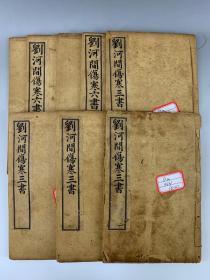 劉河間傷寒六書
劉河間傷寒六書
劉河間傷寒三書
劉河間傷寒三書
劉河間傷寒三書
劉河間傷寒三書